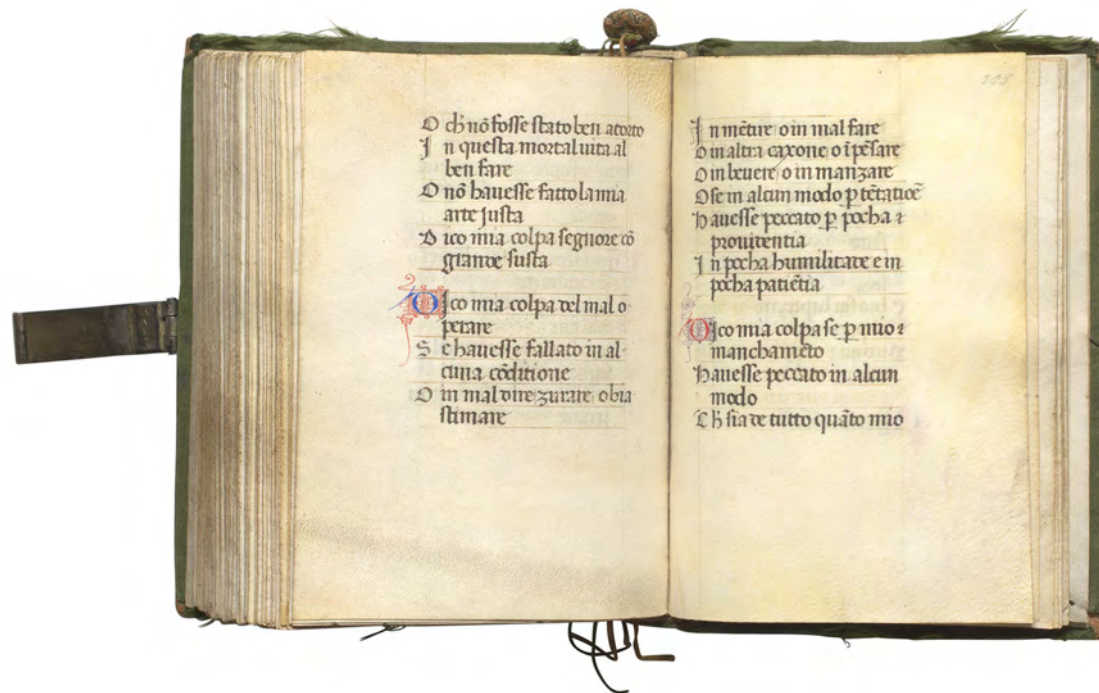 O ch̄ nō fosse stato ben acorto
I n questa mortal uita al
ben fare
O nō hauesse fatto la mia
arte justa
D ico mia colpa segnore cō
grande susta
DIco mia colpa del mal o
perare
S e hauesse fallato in al-
cuna cōditione
O in mal dire zurare o bia
stimare
205
I n mētire o in mal fare
O in altra caxone o ī pēsare
O in beuere o in manzare
O se in alcun modo ꝑ tētatiōe
H auesse peccato ꝑ pocha ꝛ
prouidentia
I n pocha humilitate e in
pocha patiētia
DIco mia colpa se ꝑ mio ꝛ
manchamēto
H auesse peccato in alcun
modo
C h̄ sia de tutto quāto mio